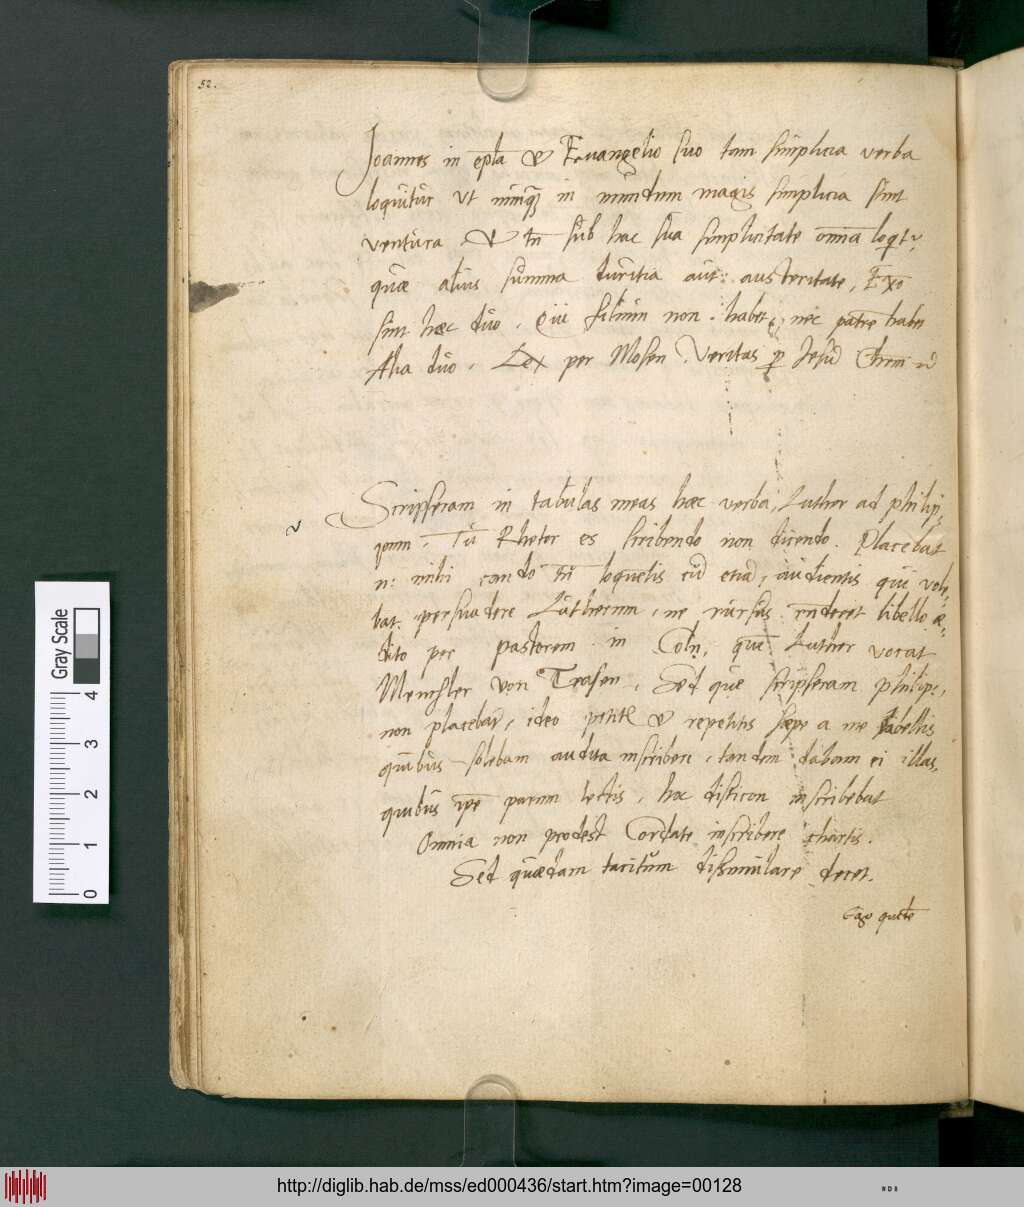 52.
Joannes in epla & Euangelio suo tam simplicia verba
loquitur ut nunq in mundum magis simplicia sint
ventura & tn sub hac sua simplicitate omnia loqt
quae alius summa duritia aut austeritate, Exo
sint haec duo. Qui filium non habet, nec patre habet
Alia duo. Lex per Mosen Veritas p Jesu Chrm
Scripseram in tabulas meas haec verba, Luther ad philip
pum. Tu Rhetor es scribendo non dicendo. Placebat
n: mihi tn loquelis etia audientis qui vole
bat persuadere Lutherum, ne rursus rnderet libello æ
dito per pastorem in Coln, que Luther vocat
Meuchler von Tresen. Sed quae scripseram philip:
non placebat, ideo petite & repetitis saepe a me tabellis
quibus solebam audita inscribere, tandem dabam ei illas,
quibus ipe parum lectis, hoc disticon inscribebat
Omnia non prodest Cordate inscribere chartis.
Sed quaedam tacitum dissimulare decet.
Ego
Gray Scale
0 1 2 3 4
http://diglib.hab.de/mss/ed000436/start.htm?image=00128